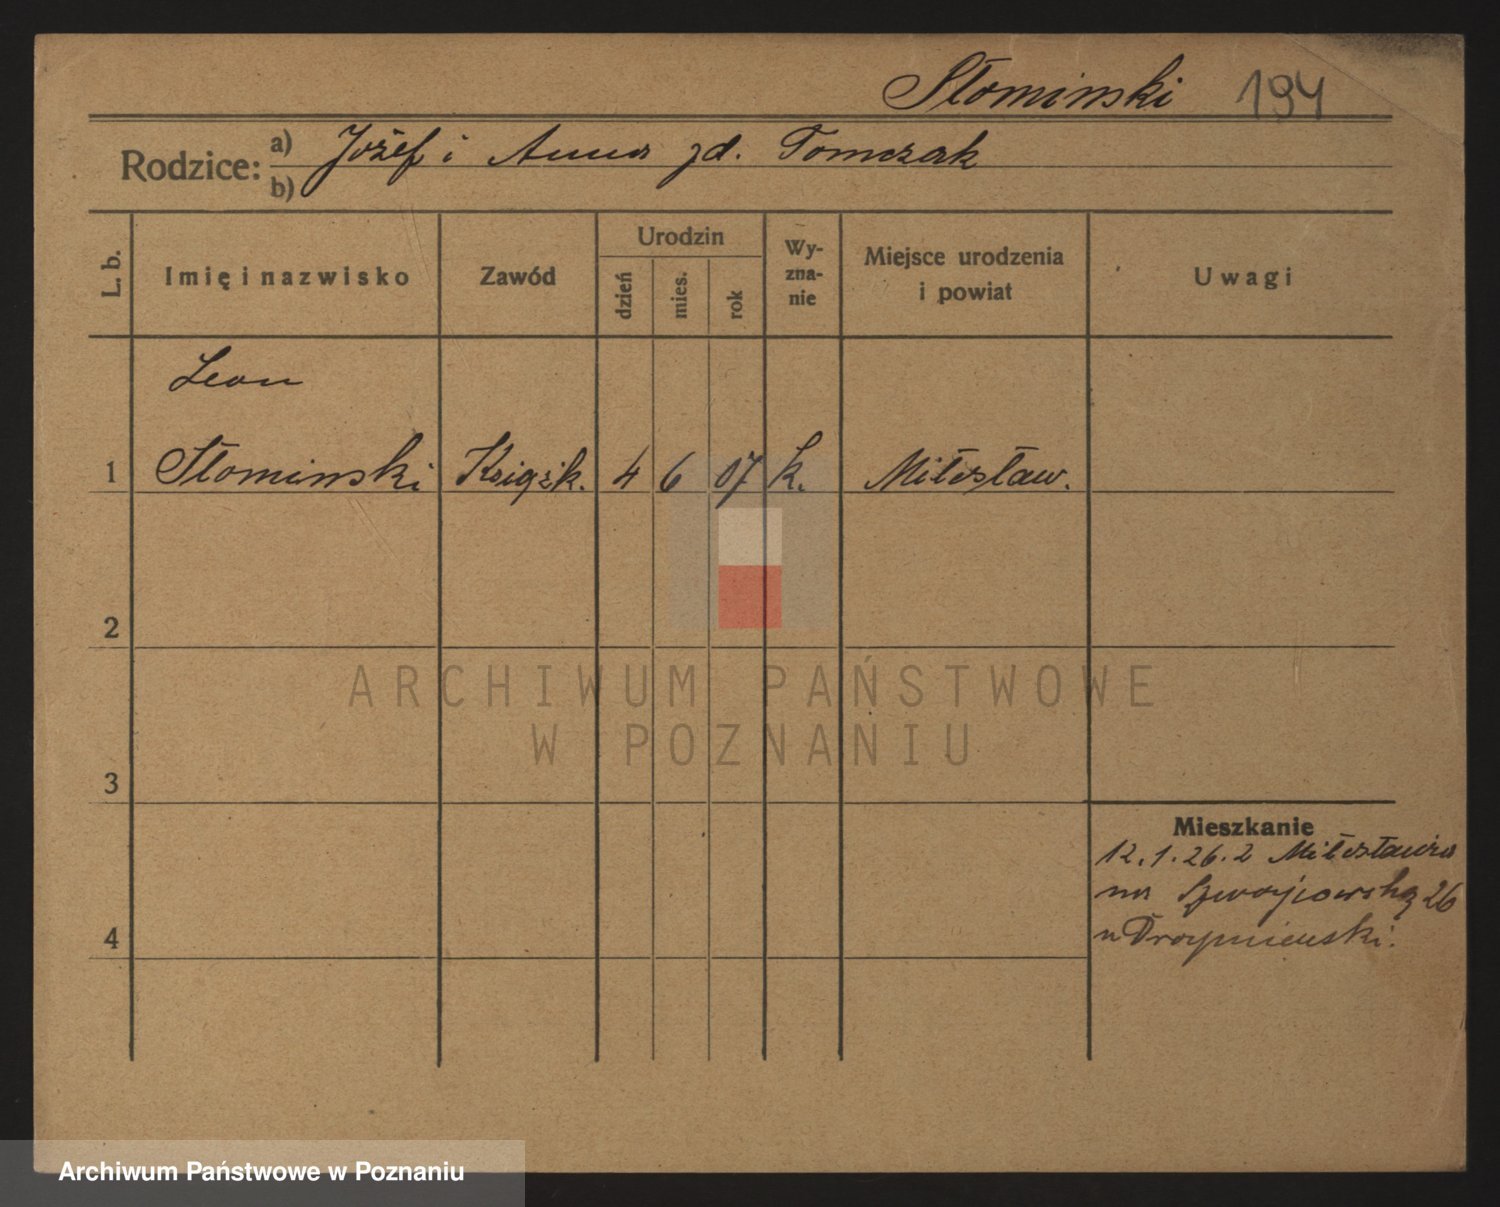 Słominski 194
Rodzice: a) Józef i Anna zd. Tomczak
b)
L. b. Imię i nazwisko Zawód Urodzin dzień mies. rok Wyznanie Miejsce urodzenia i powiat Uwagi
Leon
1 Słominski Książk. 4 6 07 k. Miłosław.
2
ARCHIWUM PAŃSTWOWE
W POZNANIU
3
Mieszkanie
12.1.26. z Miłosławia
na 26
4 u
Archiwum Państwowe w Poznaniu